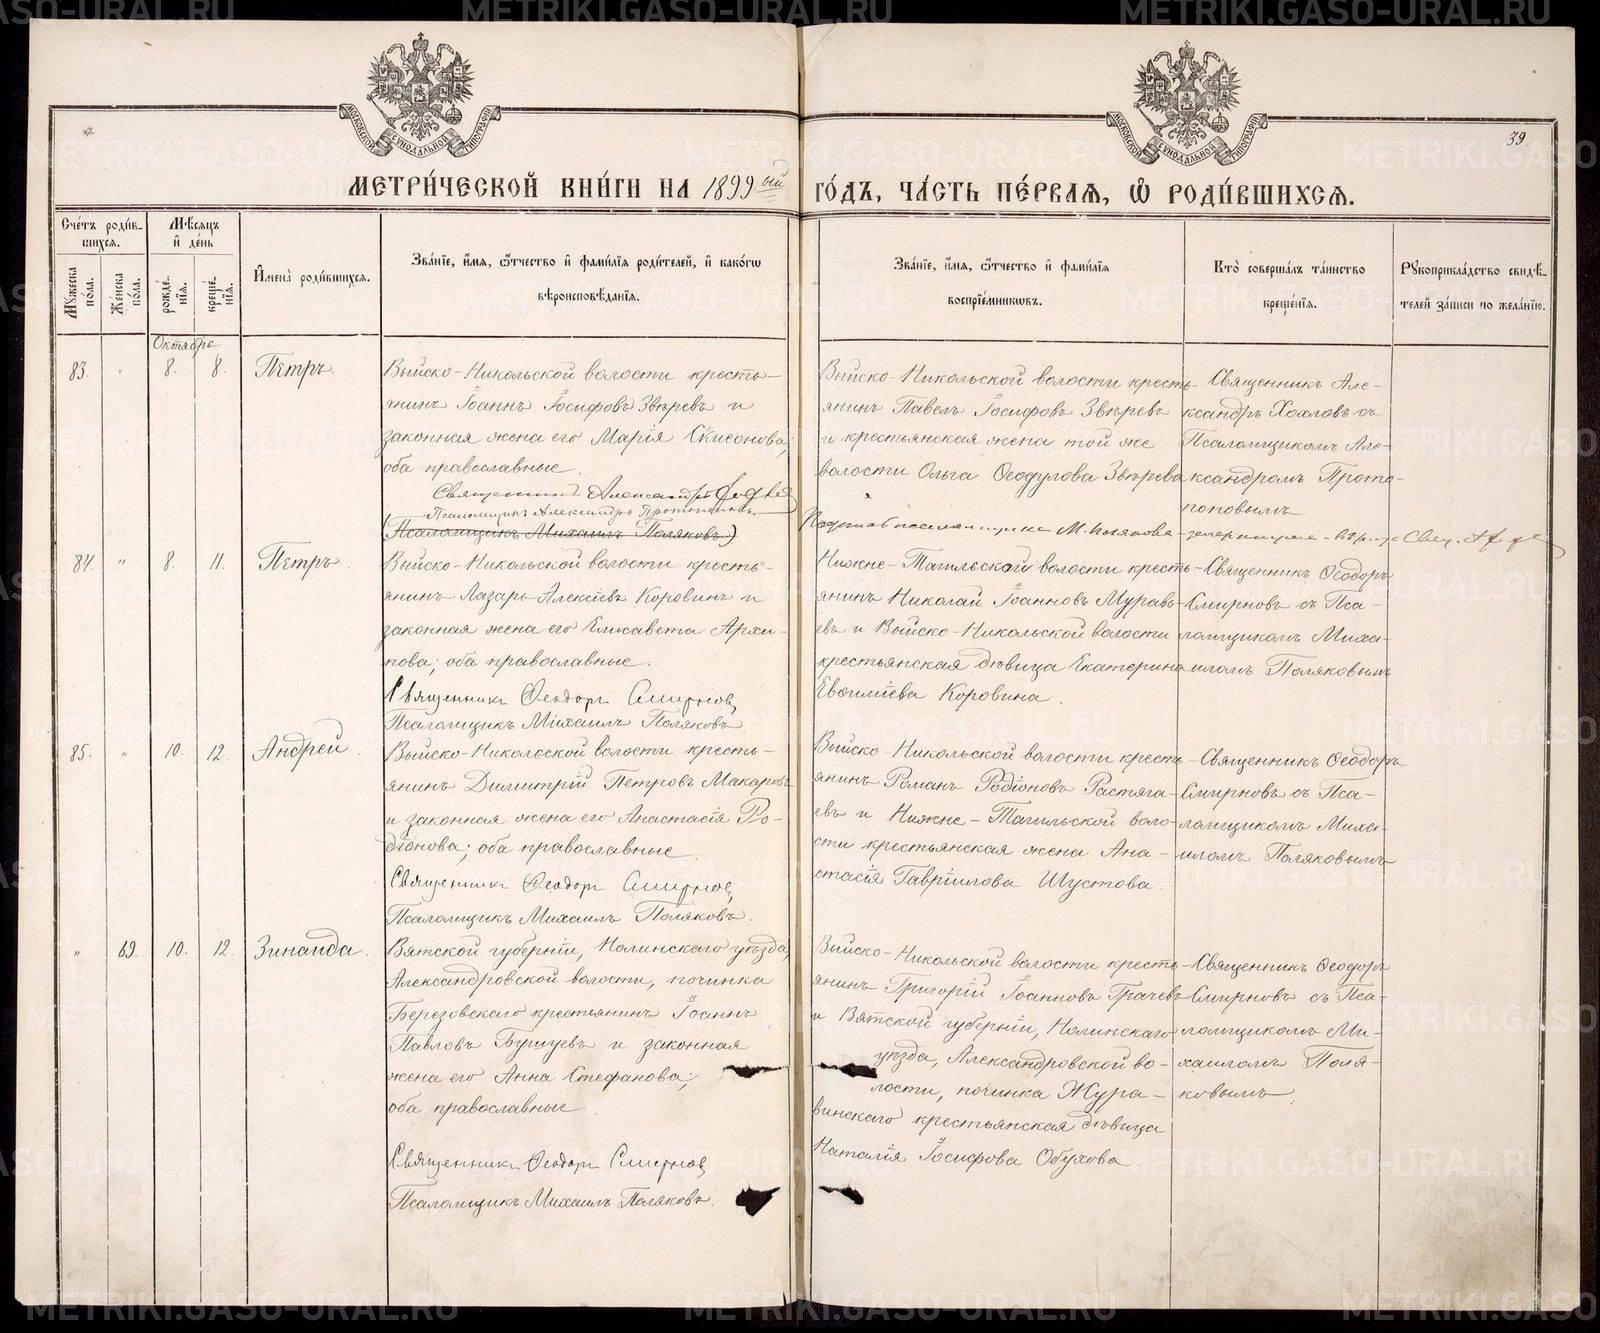 МЕТРИ́ЧЕСКОЙ КНИ́ГИ НА 1899ый ГО́ДЪ, ЧА́СТЬ ПЕ́РВАѦ, Ѽ РОДИ́ВШИХСѦ.
39.
Сче́тъ роди́в-
шихсѧ.
Мѣ́сѧцъ
и҆ де́нь
И҆мена̀ роди́вшихсѧ.
Зва́нїе, и҆́мѧ, ѻ҆́тчество и҆ фами́лїѧ роди́телей, и҆ како́гѡ
вѣроисповѣ́данїѧ.
Зва́нїе, и҆́мѧ, ѻ҆́тчество и҆ фами́лїѧ
воспрїе́мникѡвъ.
Кто̀ соверша́лъ та́инство
креще́нїѧ.
Рꙋкоприкла́дство свидѣ́-
телей за́писи по жела́нїю.
Мꙋ́жеска
по́ла.
Же́нска
по́ла.
рожде́-
нїѧ.
креще́-
нїѧ.
Октябрь
83. " 8. 8. Петръ.
Выйско-Никольской волости кресть-
янинъ Іоаннъ Іосифовъ Звѣревъ и
законная жена его Марія
оба православные.
Священникъ Александръ
Псаломщикъ Александръ Протопоповъ
(Псаломщикъ Михаилъ Поляковъ)
Выйско-Никольской волости кресть-
янинъ Павелъ Іосифовъ Звѣревъ
и крестьянская жена той же
волости Ольга Ѳеодулова Звѣрева
Священникъ Але-
ксандръ Хохловъ съ
Псаломщикомъ Але-
ксандромъ Прото-
поповымъ
84. " 8. 11. Петръ.
Выйско-Никольской волости кресть-
янинъ Лазарь Алексіевъ Коровинъ и
законная жена его Елисавета Архи-
пова; оба православные.
Священникъ Ѳеодоръ Смирновъ,
Псаломщикъ Михаилъ Поляковъ
Нижне-Тагильской волости кресть-
янинъ Николай Іоанновъ Муравь-
евъ и Выйско-Никольской волости
крестьянская дѣвица Екатерина
Евѳиміева Коровина.
Священникъ Ѳеодоръ
Смирновъ съ Пса-
ломщикомъ Миха-
иломъ Поляковымъ
85. " 10. 12. Андрей.
Выйско-Никольской волости кресть-
янинъ Димитрій Петровъ Макаровъ
и законная жена его Анастасія Ро-
діонова; оба православные
Священникъ Ѳеодоръ Смирновъ,
Псаломщикъ Михаилъ Поляковъ.
Выйско-Никольской волости кресть-
янинъ Романъ Родіоновъ Растяга-
евъ и Нижне-Тагильской воло-
сти крестьянская жена Ана-
стасія Гавріилова Шустова.
Священникъ Ѳеодоръ
Смирновъ съ Пса-
ломщикомъ Миха-
иломъ Поляковымъ
" 69. 10. 12. Зинаида.
Вятской губерніи, Нолинскаго уѣзда,
Александровской волости, починка
Березовскаго крестьянинъ Іоаннъ
Павловъ Бушуевъ и законная
жена его Анна Стефанова;
оба православные.
Священникъ Ѳеодоръ Смирновъ,
Псаломщикъ Михаилъ Поляковъ.
Выйско-Никольской волости кресть-
янинъ Григорій Іоанновъ Грачевъ
и Вятской губерніи, Нолинскаго
уѣзда, Александровской во-
лости, починка Жура-
винскаго крестьянская дѣвица
Наталія Іосифова Обухова.
Священникъ Ѳеодоръ
Смирновъ съ Пса-
ломщикомъ Ми-
хаиломъ Поля-
ковымъ.